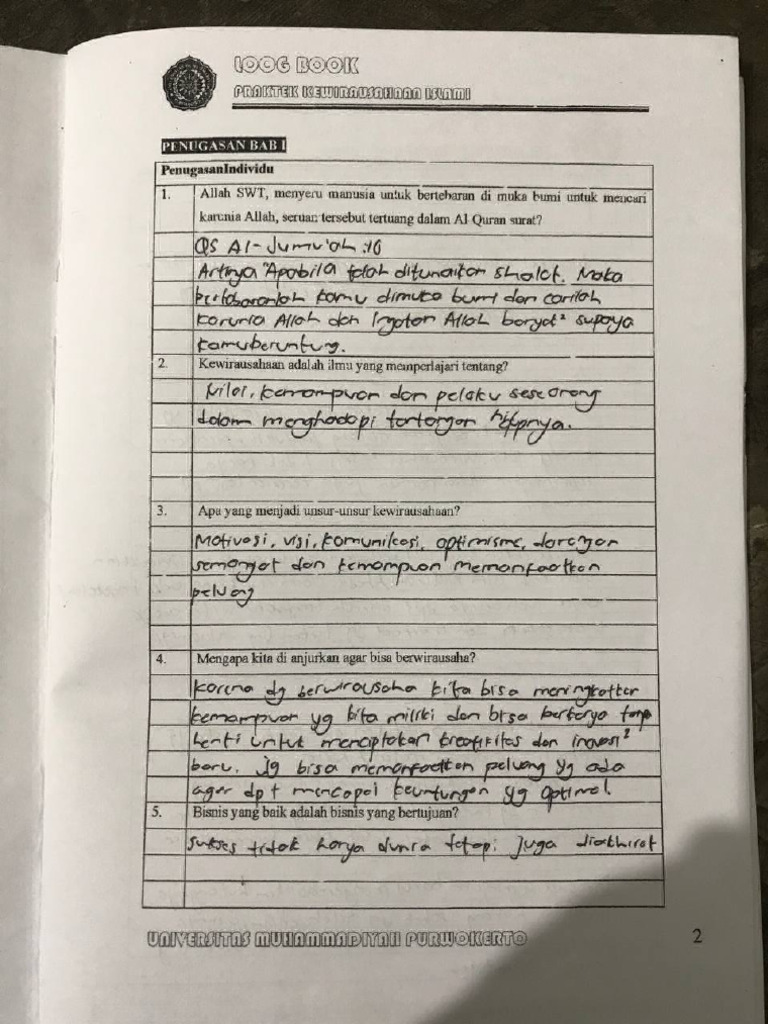 LOOG BOOK
PRAKTEK KEWIRAUSAHAAN ISLAMI
PENUGASAN BAB I
PenugasanIndividu
1. Allah SWT, menyeru manusia untuk bertebaran di muka bumi untuk mencari
karunia Allah, seruan tersebut tertuang dalam Al Quran surat?
QS Al-Jumu'ah :10
Artinya "Apabila telah ditunaikan shalat. Maka
bertebaranlah kamu dimuka bumi dan carilah
karunia Allah dan Ingatan Allah banyak² supaya
kamuberuntung.
2. Kewirausahaan adalah ilmu yang memperlajari tentang?
Nilai, kemampuan dan pelaku seseorang
dalam menghadapi tantangan hidupnya.
3. Apa yang menjadi unsur-unsur kewirausahaan?
Motivasi, visi, komunikasi, optimisme, dorongan
semangat dan kemampuan memanfaatkan
peluang
4. Mengapa kita di anjurkan agar bisa berwirausaha?
Karena dg berwirausaha kita bisa meningkatkan
kemampuan yg kita miliki dan bisa berkarya tanpa
henti untuk menciptakan kreatifitas dan inovasi²
baru. jg bisa memanfaatkan peluang yg ada
agar dpt mencapai keuntungan yg optimal.
5. Bisnis yang baik adalah bisnis yang bertujuan?
Sukses tidak hanya dunia tetapi juga diakhirat
UNIVERSITAS MUHAMMADIYAH PURWOKERTO
2